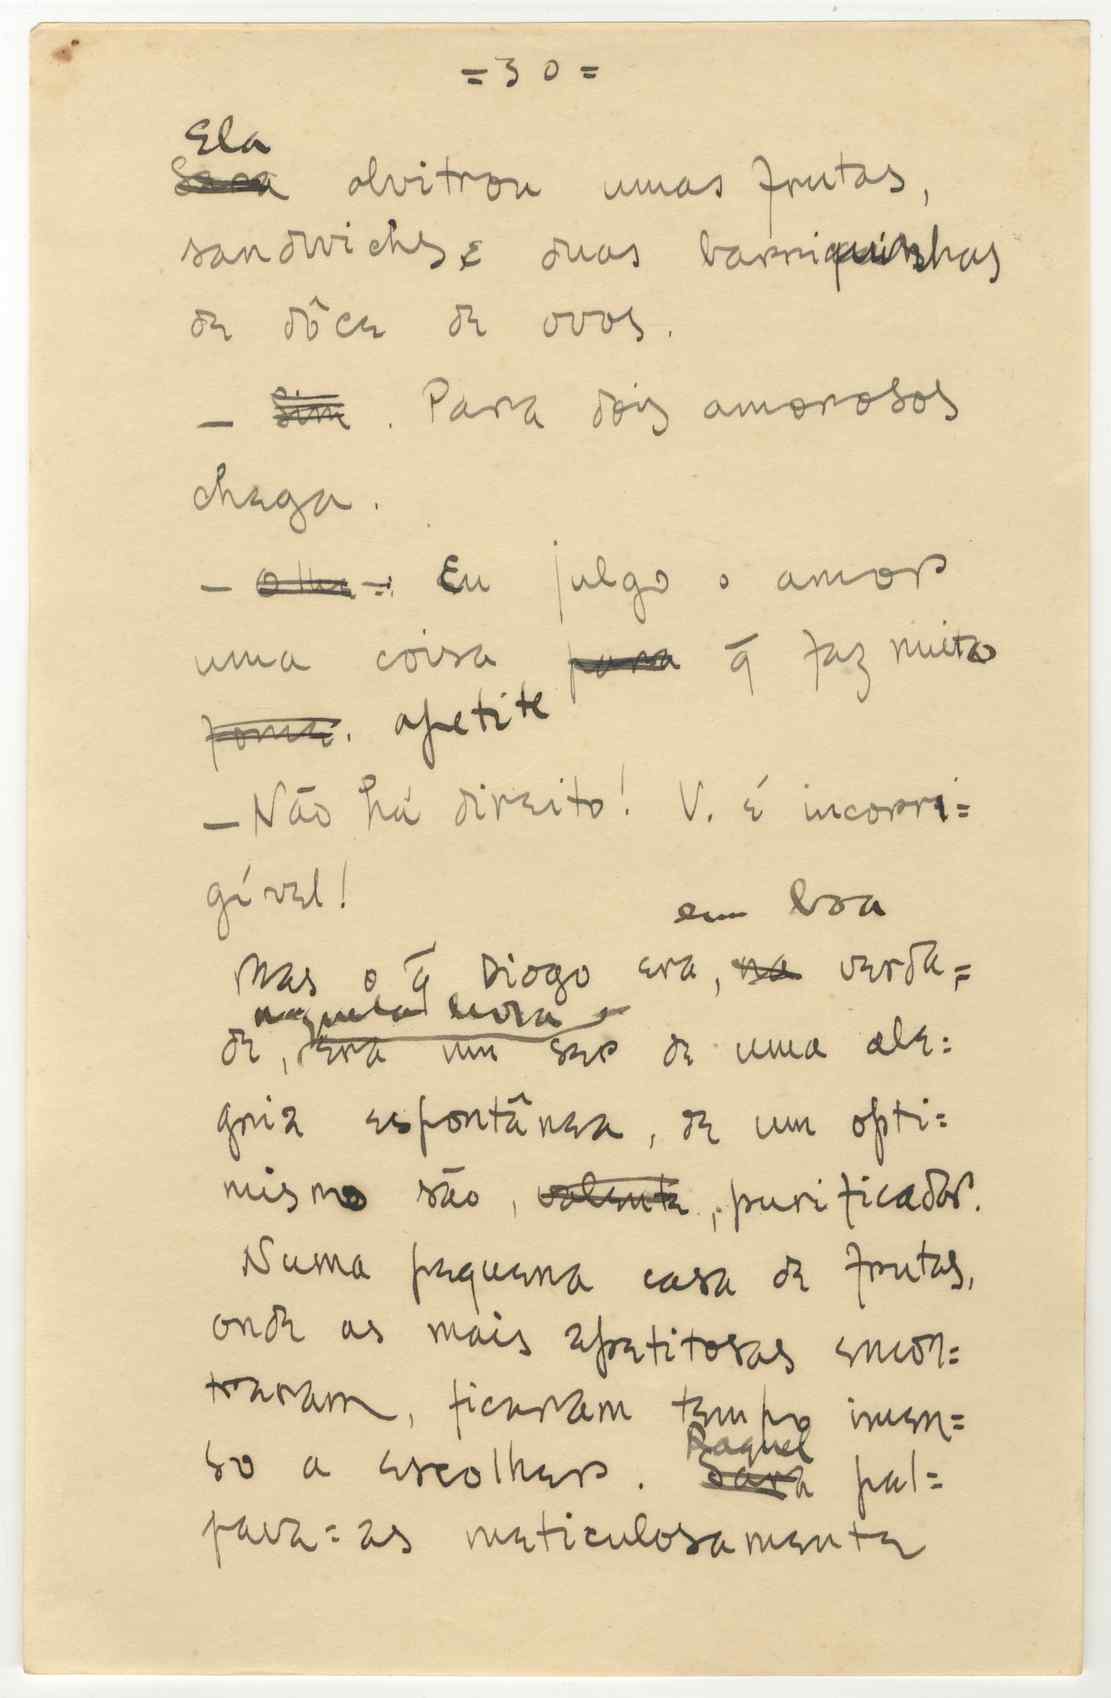 = 30 =
Ela
Sara alvitrou umas frutas,
sandwiches e duas barriquinhas
de dôce de ovos.
— Sim. Para dois amorosos
chega.
— Olha —: Eu julgo o amor
uma coisa para q̄ faz muito
fome. apetite
— Não há direito! V. é incorri=
gível!
em boa
Mas o q̄ Diogo era, na verda=
naquela hora
de, era um ser de uma ale=
gria espontânea, de um opti=
mismo são, valente, purificador.
Numa pequena casa de frutas,
onde as mais apetitosas encon=
traram, ficaram tempo imen=
so a escolher.
Raquel
Sara pal=
pava=as meticulosamente